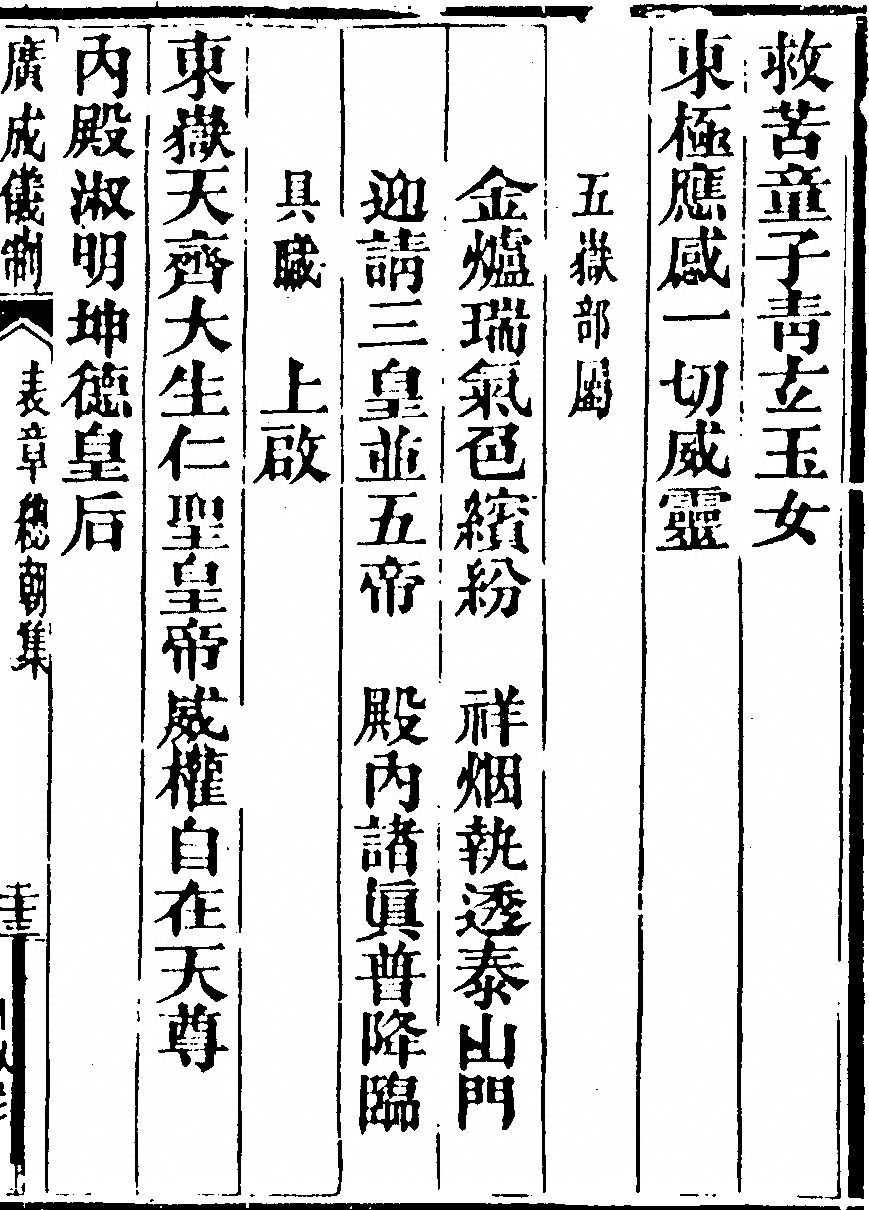 救苦童子靑玄玉女
東極應感一切威靈
五嶽部屬
金爐瑞氣色繽紛　祥烟執透泰山門
迎請三皇並五帝　殿內諸眞普降臨
具職　上啟
東嶽天齊大生仁聖皇帝威權自在天尊
內殿淑明坤德皇后
廣成儀制　表章總朝集